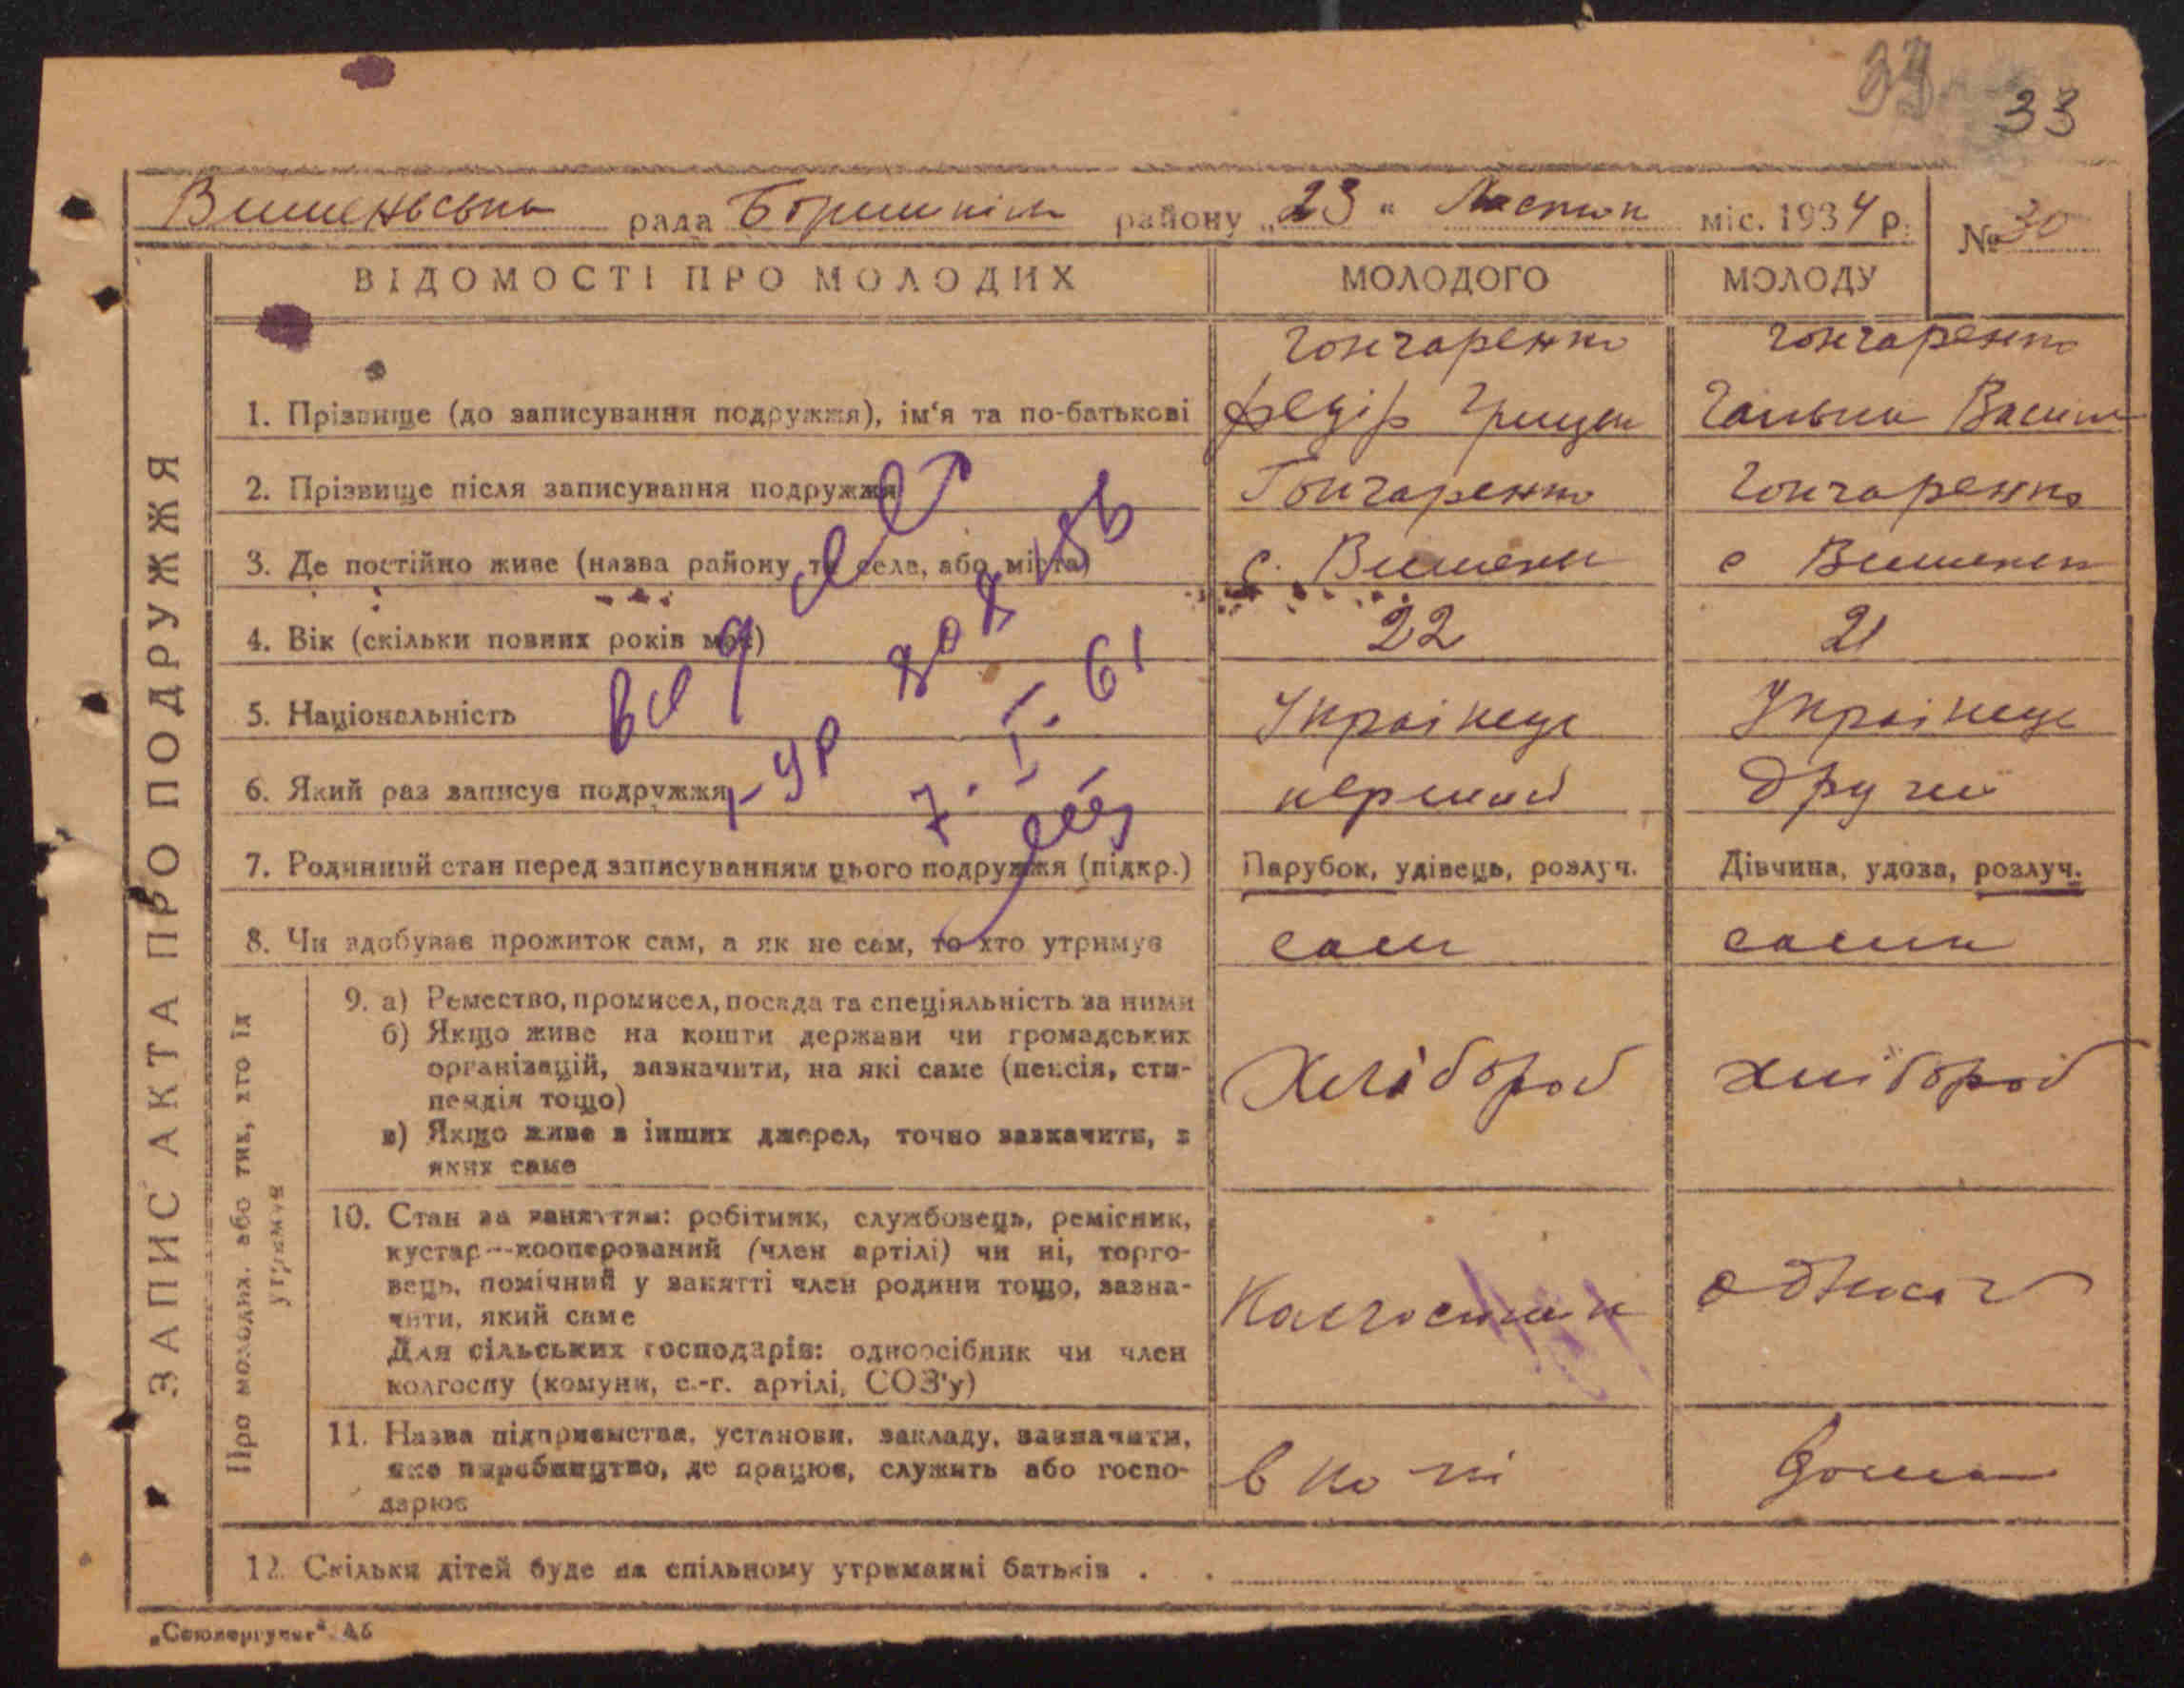 33
Вишеньська рада Боришпіль району „23“ Листоп міс. 1934 р. № 30
ВІДОМОСТІ ПРО МОЛОДИХ МОЛОДОГО МОЛОДУ
Гончаренко Гончаренко
1. Прізвище (до записування подружжя), ім‘я та по-батькові Федір Грицьк Галька Васил
2. Прізвище після записування подружжя Гончаренко Гончаренко
3. Де постійно живе (назва району та села, або міста) с. Вишеньки с Вишеньки
4. Вік (скільки повних років має) 22 21
5. Національність Українець Українець
6. Який раз записує подружжя перший другий
7. Родинний стан перед записуванням цього подружжя (підкр.) Парубок, удівець, розлуч. Дівчина, удова, розлуч.
8. Чи здобуває прожиток сам, а як не сам, то хто утримує сам сама
ЗАПИС АКТА ПРО ПОДРУЖЖЯ
Про молодих, або тих, хто їх
утримує
9. а) Ремество, промисел, посада та спеціяльність за ними
б) Якщо живе на кошти держави чи громадських
організацій, зазначити, на які саме (пенсія, сти-
пендія тощо)
в) Якщо живе з інших джерел, точно зазначити, з
яких саме
Хлібороб хлібороб
10. Стан за заняттям: робітник, службовець, ремісник,
кустар—кооперований (член артілі) чи ні, торго-
вець, помічний у занятті член родини тощо, зазна-
чити, який саме
Для сільських господарів: одноосібник чи член
колгоспу (комуни, с.-г. артілі, СОЗ'у)
Колгоспник
11. Назва підприємства, установи, закладу, зазначити,
яке виробництво, де працює, служить або госпо-
дарює
дома
12. Скільки дітей буде на спільному утриманні батьків . .
7. I. 61